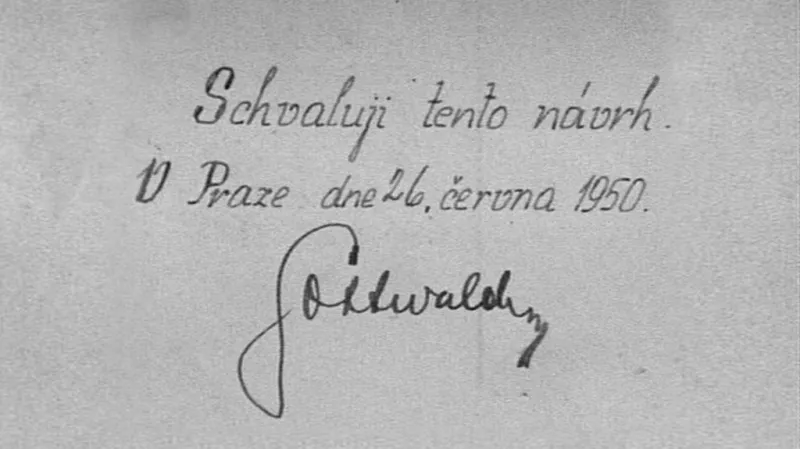 Schvaluji tento návrh.
V Praze dne 26. června 1950.
Gottwald